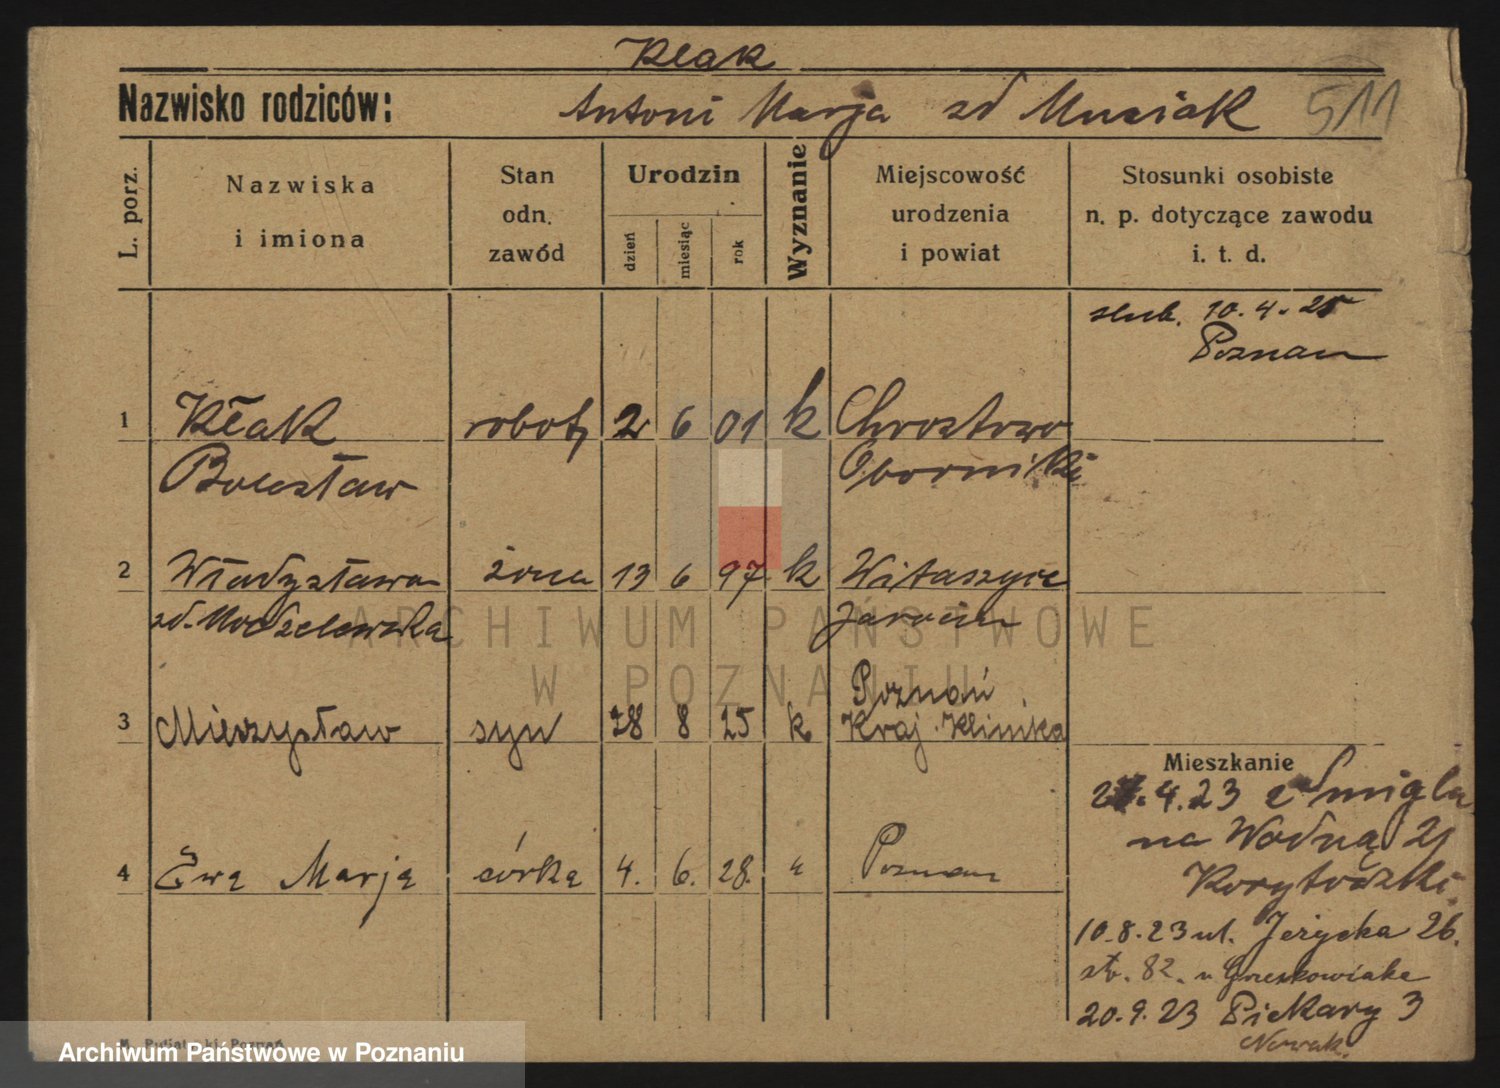 Kłak
Nazwisko rodziców: Antoni Marja zd Musiak 511
L. porz.
Nazwiska
i imiona
Stan
odn.
zawód
Urodzin
dzień miesiąc rok
Wyznanie
Miejscowość
urodzenia
i powiat
Stosunki osobiste
n. p. dotyczące zawodu
i. t. d.
slub. 10.4.25
Poznan
1 Kłak robot, 2 6 01 k Chrostowo
Bolesław Oborniki
2 Władysława żona 13 6 97 k Witaszyce
zd. Modzelewska Jarocin
Poznań
3 Mieczysław syn 28 8 25 k Kraj. Klinika
4 Ewa Marja córka 4. 6. 28. " Poznan
Mieszkanie
27.4.23 z Smigla
na Wodną 21
10.8.23 ul. Jeżycka 26.
20.9.23 Piekary 3
Nowak.
ARCHIWUM PAŃSTWOWE
W POZNANIU
Archiwum Państwowe w Poznaniu